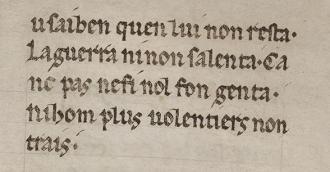 usaiben quen lui non resta.
La guerra ni non salenta. Ca
ne pas nefi nol fon genta.
Nihom plus uolentiers non
trais.